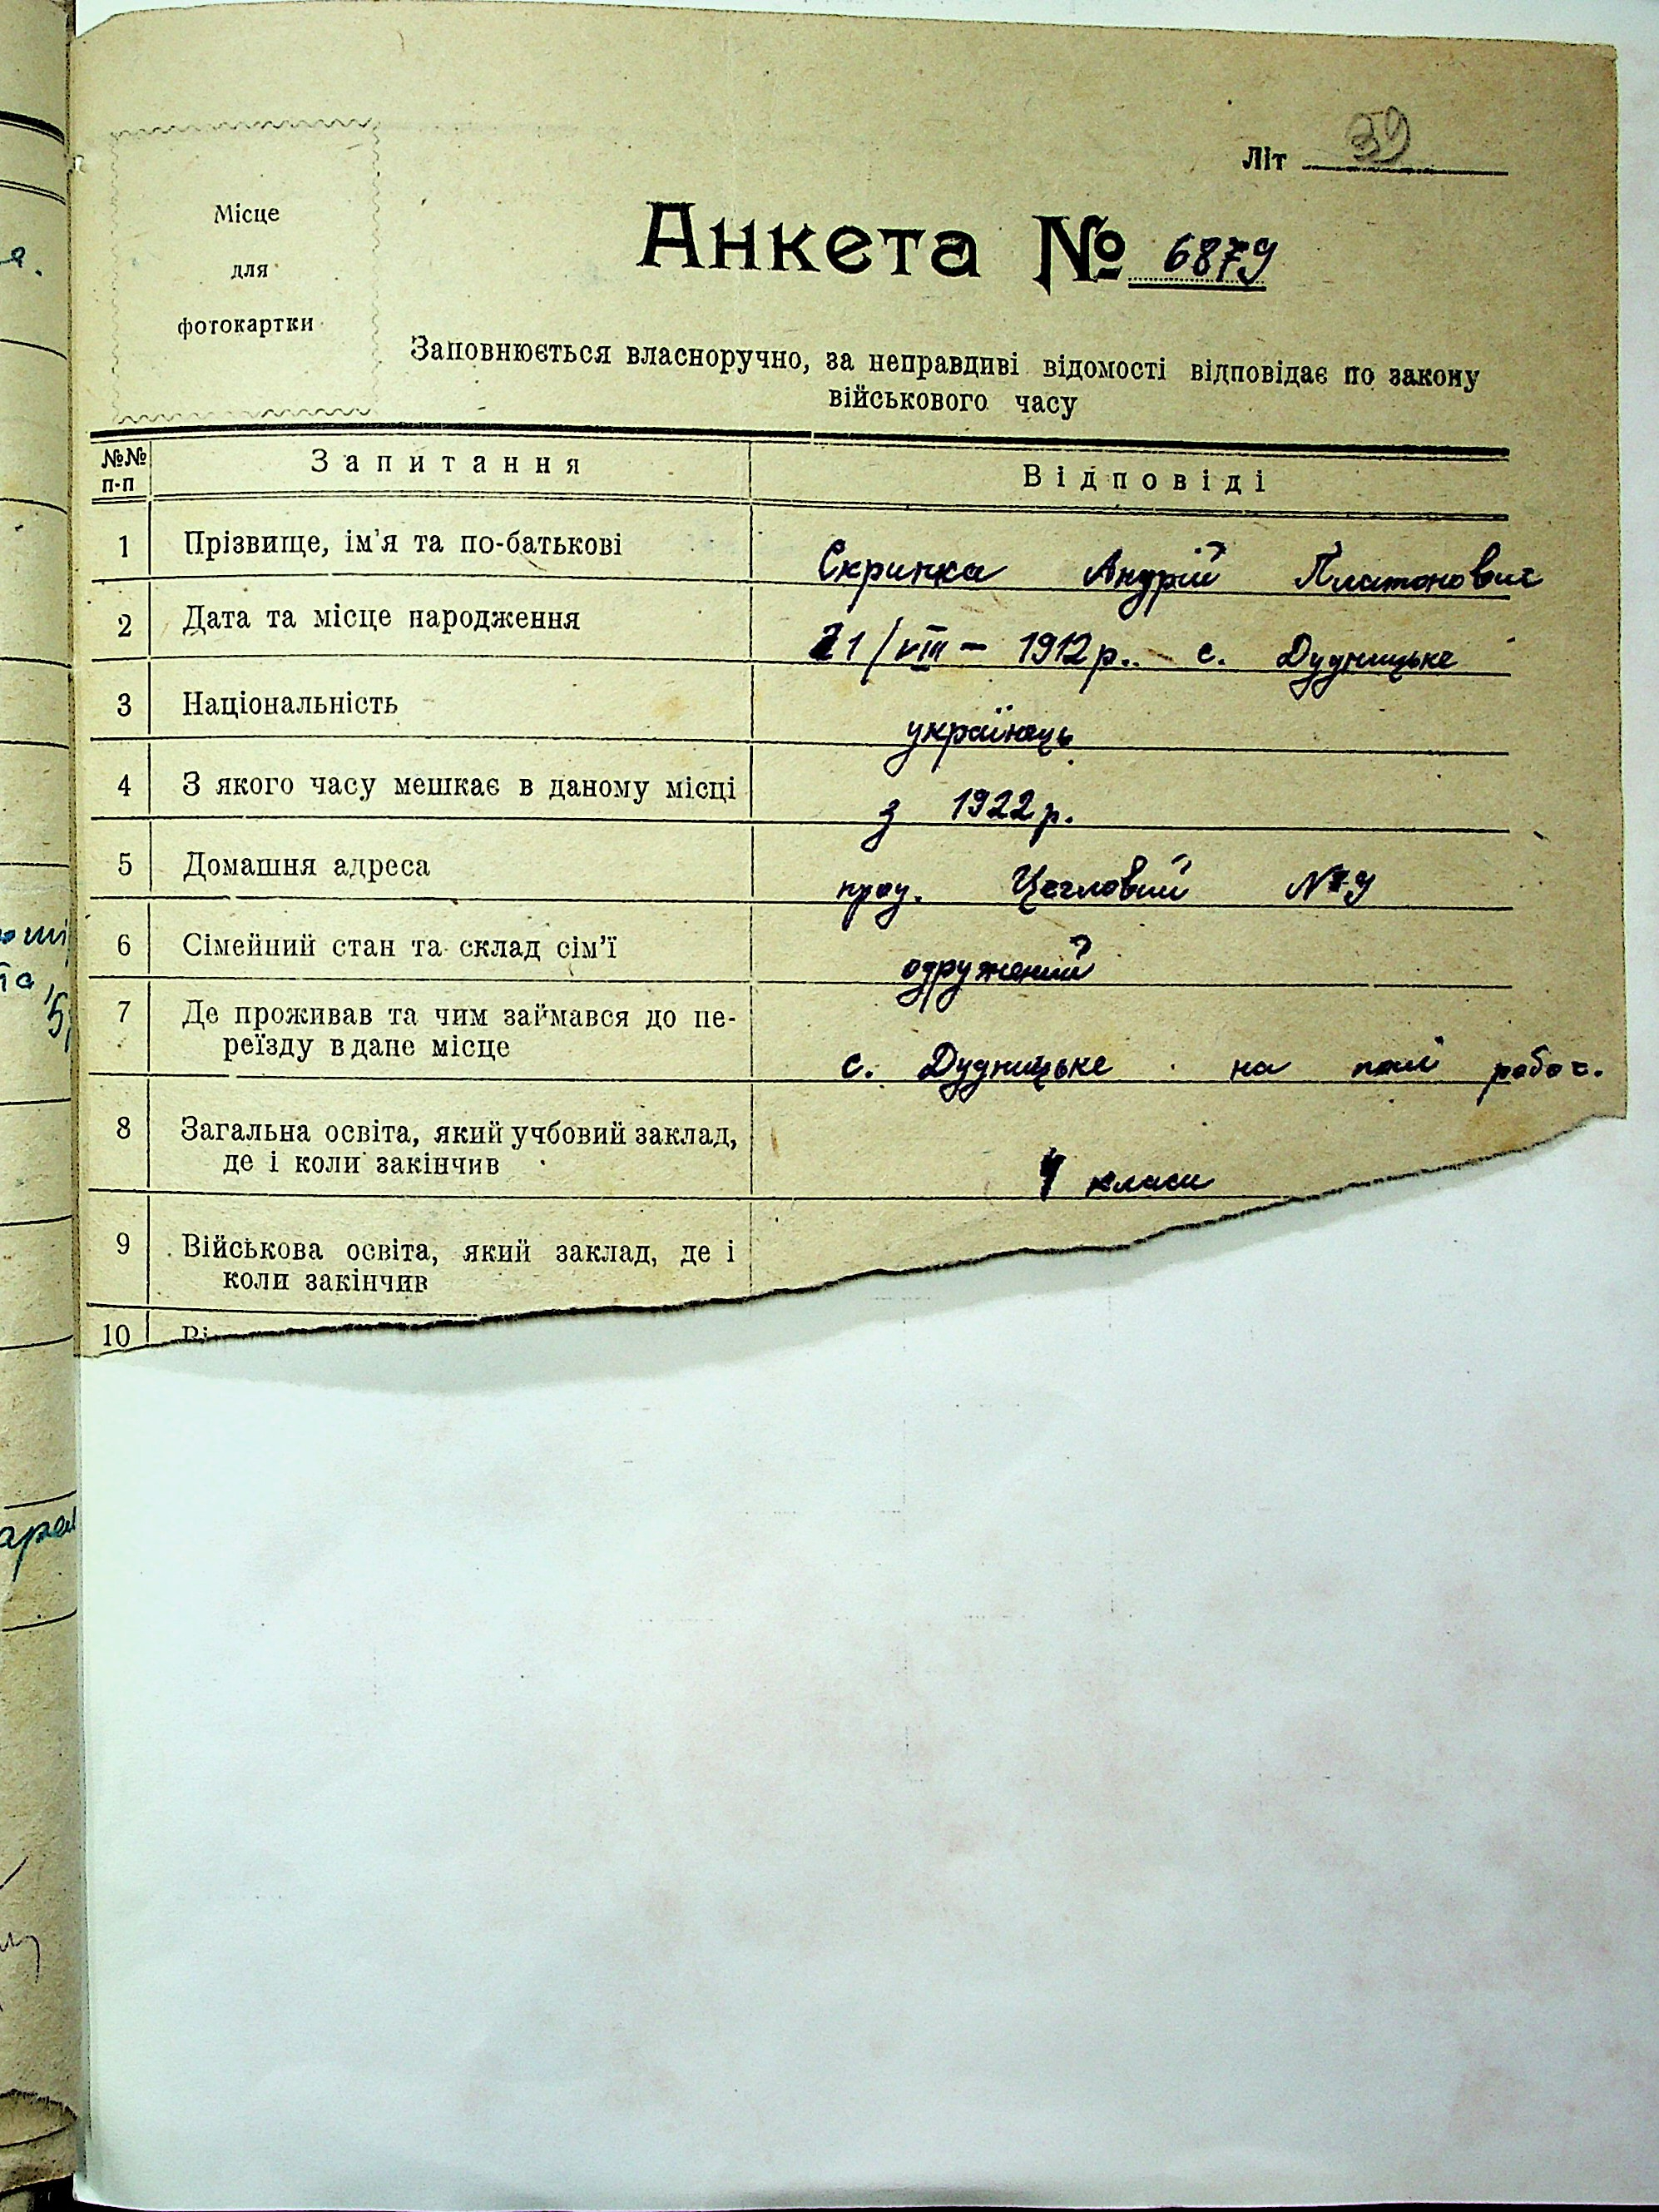 Літ 39
Місце
для
фотокартки
Анкета № 6879
Заповнюється власноручно, за неправдиві відомості відповідає по закону
військового часу
№№ п-п Запитання Відповіді
1 Прізвище, ім'я та по-батькові Скрипка Андрій Платонович
2 Дата та місце народження 21/VIII – 1912 р. с. Дудницьке
3 Національність українець
4 З якого часу мешкає в даному місці з 1922 р.
5 Домашня адреса пров. Цегловий № 9
6 Сімейний стан та склад сім'ї одружений
7 Де проживав та чим займався до пе-
реїзду в дане місце с. Дудницьке на полі робос.
8 Загальна освіта, який учбовий заклад,
де і коли закінчив 4 класи
9 Військова освіта, який заклад, де і
коли закінчив
10